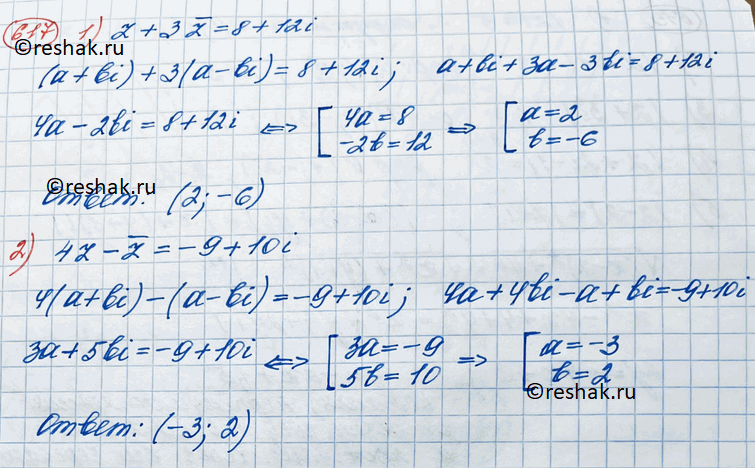 617 1) z + 3z̅ = 8 + 12i
©reshak.ru
(a + bi) + 3(a - bi) = 8 + 12i; a + bi + 3a - 3bi = 8 + 12i
4a - 2bi = 8 + 12i ⟺ [ 4a = 8 ⟹ [ a = 2
-2b = 12 b = -6
©reshak.ru
Ответ: (2; -6)
2) 4z - z̅ = -9 + 10i
4(a + bi) - (a - bi) = -9 + 10i; 4a + 4bi - a + bi = -9 + 10i
3a + 5bi = -9 + 10i ⟺ [ 3a = -9 ⟹ [ a = -3
5b = 10 b = 2
©reshak.ru
Ответ: (-3; 2)